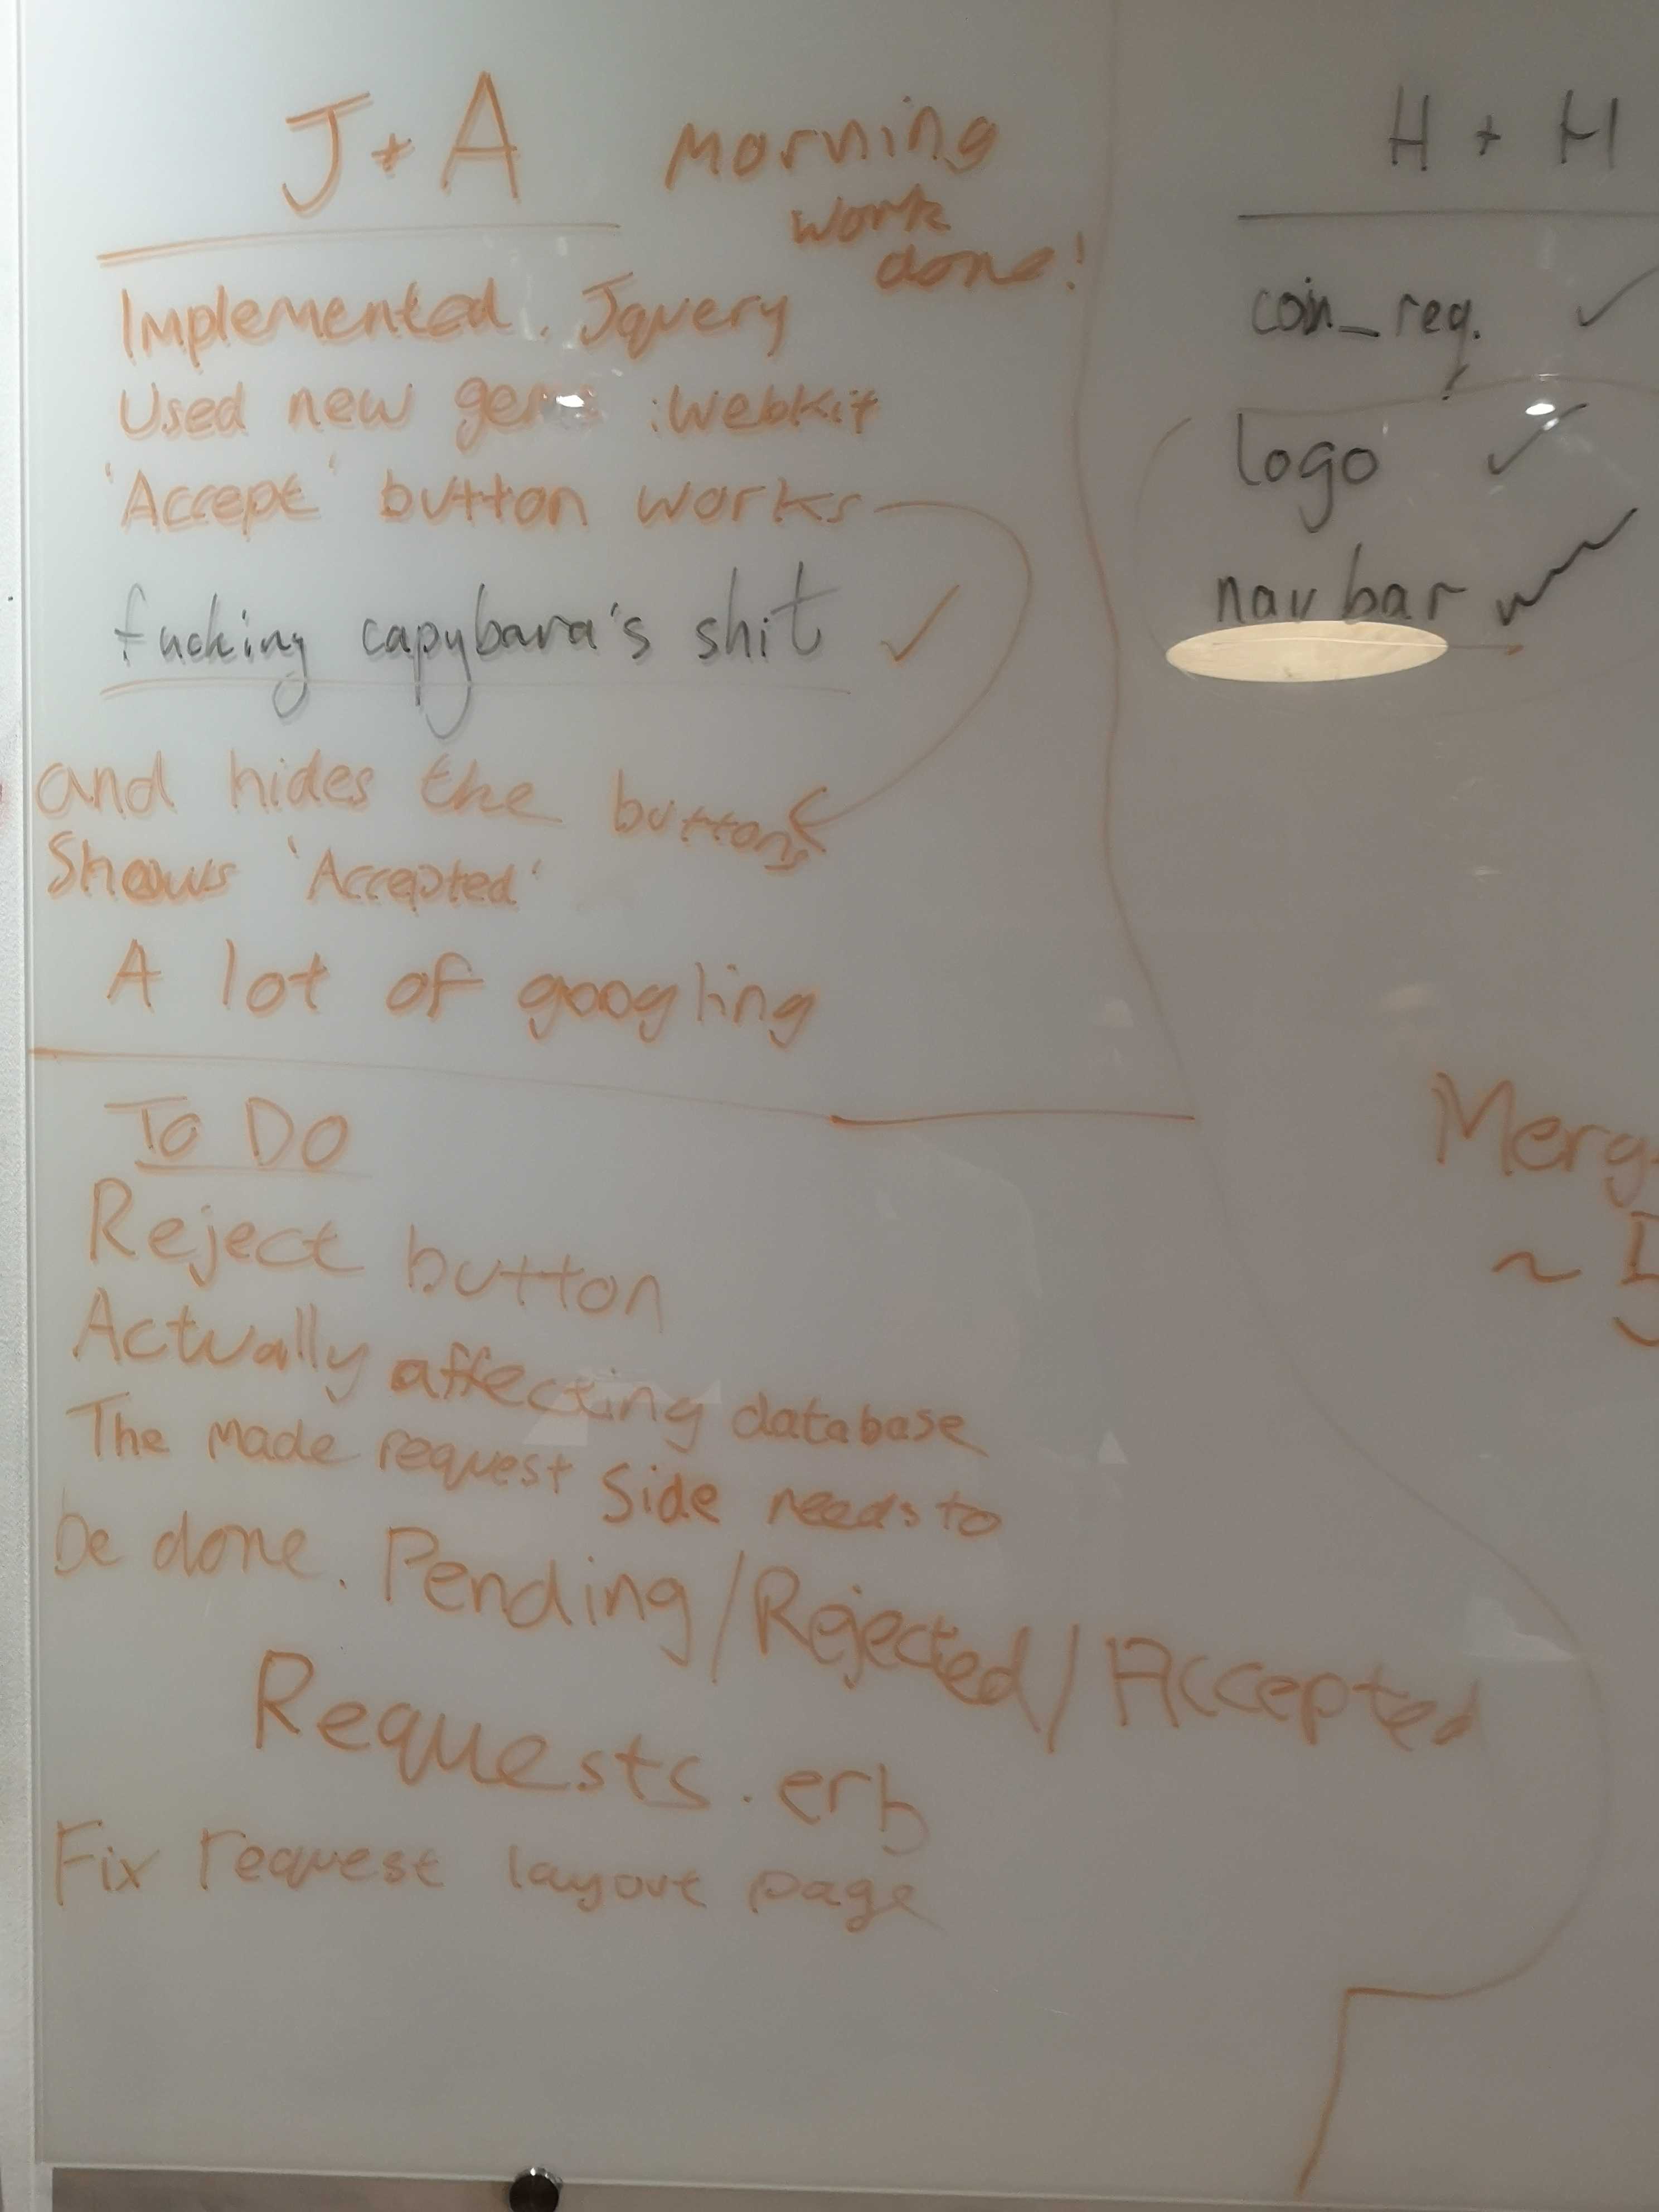 J + A Morning
work
done!
Implemented Jquery
Used new gems :Webkit
'Accept' button works
fucking capybara's shit ✓
and hides the buttons
Shows 'Accepted'
A lot of googling
To Do
Reject button
Actually affecting database
The made request side needs to
be done. Pending/Rejected/Accepted
Requests.erb
Fix request layout page
H + M
coin_req. ✓
logo ✓
nav bar ✓
Merg